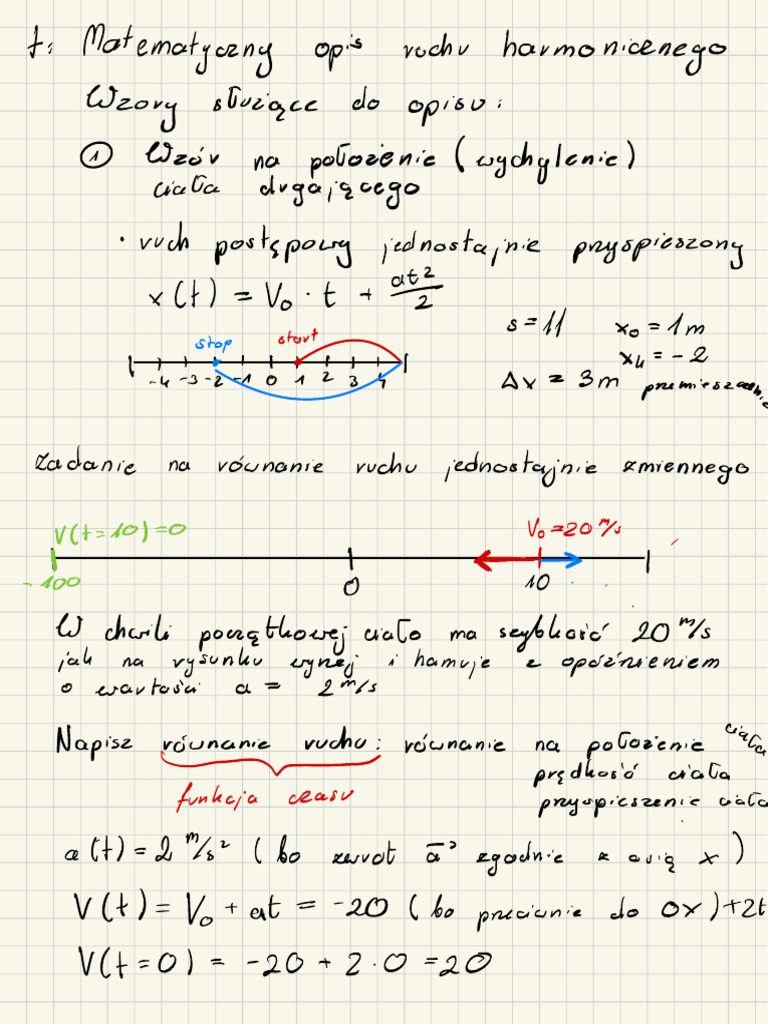 t: Matematyczny opis ruchu harmonicznego
Wzory służące do opisu:
① Wzór na położenie (wychylenie)
ciała drgającego
• ruch postępowy jednostajnie przyspieszony
x(t) = V₀ · t + at²/2
s = 11 x₀ = 1m
stop start
xₖ = -2
-4 -3 -2 -1 0 1 2 3 4
Δx = 3m przemieszczenie
Zadanie na równanie ruchu jednostajnie zmiennego
V(t=10)=0 V₀=20 m/s
-100 0 10
W chwili początkowej ciało ma szybkość 20 m/s
jak na rysunku wyżej i hamuje z opóźnieniem
o wartości a = 2 m/s
Napisz równanie ruchu: równanie na położenie ciała
prędkość ciała
funkcja czasu
przyspieszenie ciała
a(t) = 2 m/s² (bo zwrot a⃗ zgodnie z osią x)
V(t) = V₀ + at = -20 (bo przeciwnie do 0x)+2t
V(t=0) = -20 + 2·0 = 20